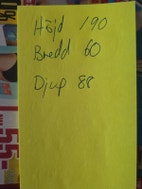 Höjd 190
Bredd 60
Djup 88